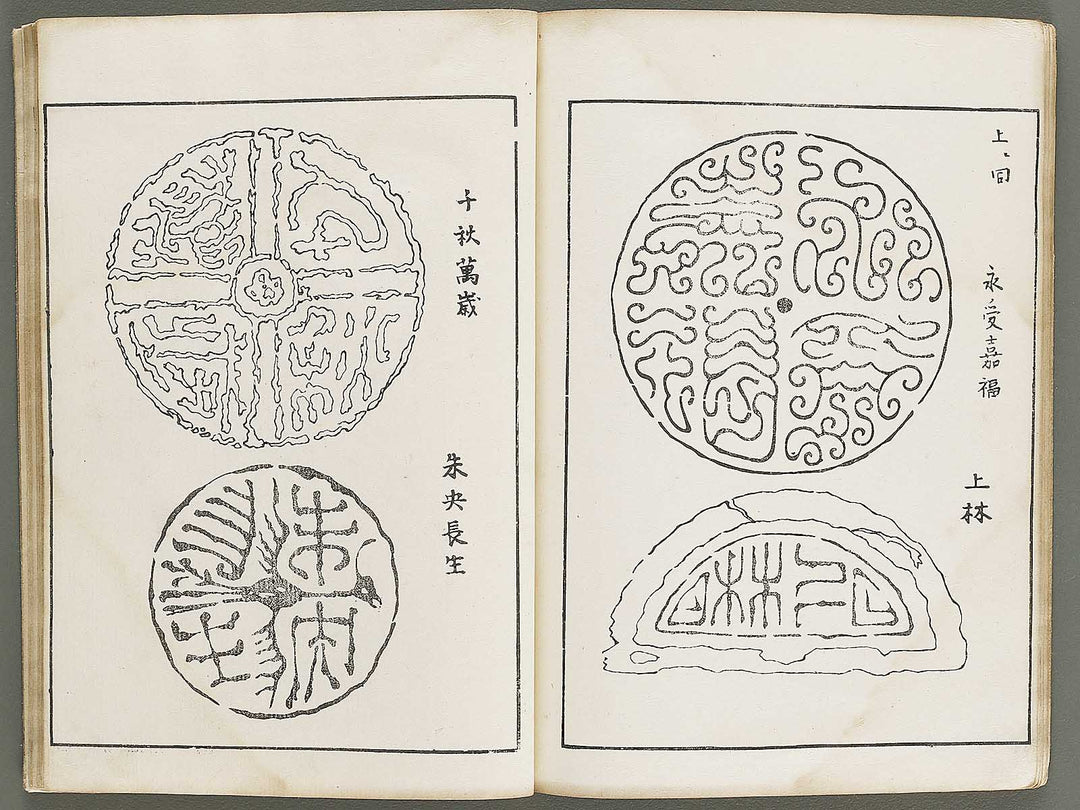 上ニ同
永受嘉福
上林
千秋萬歳
朱央長生